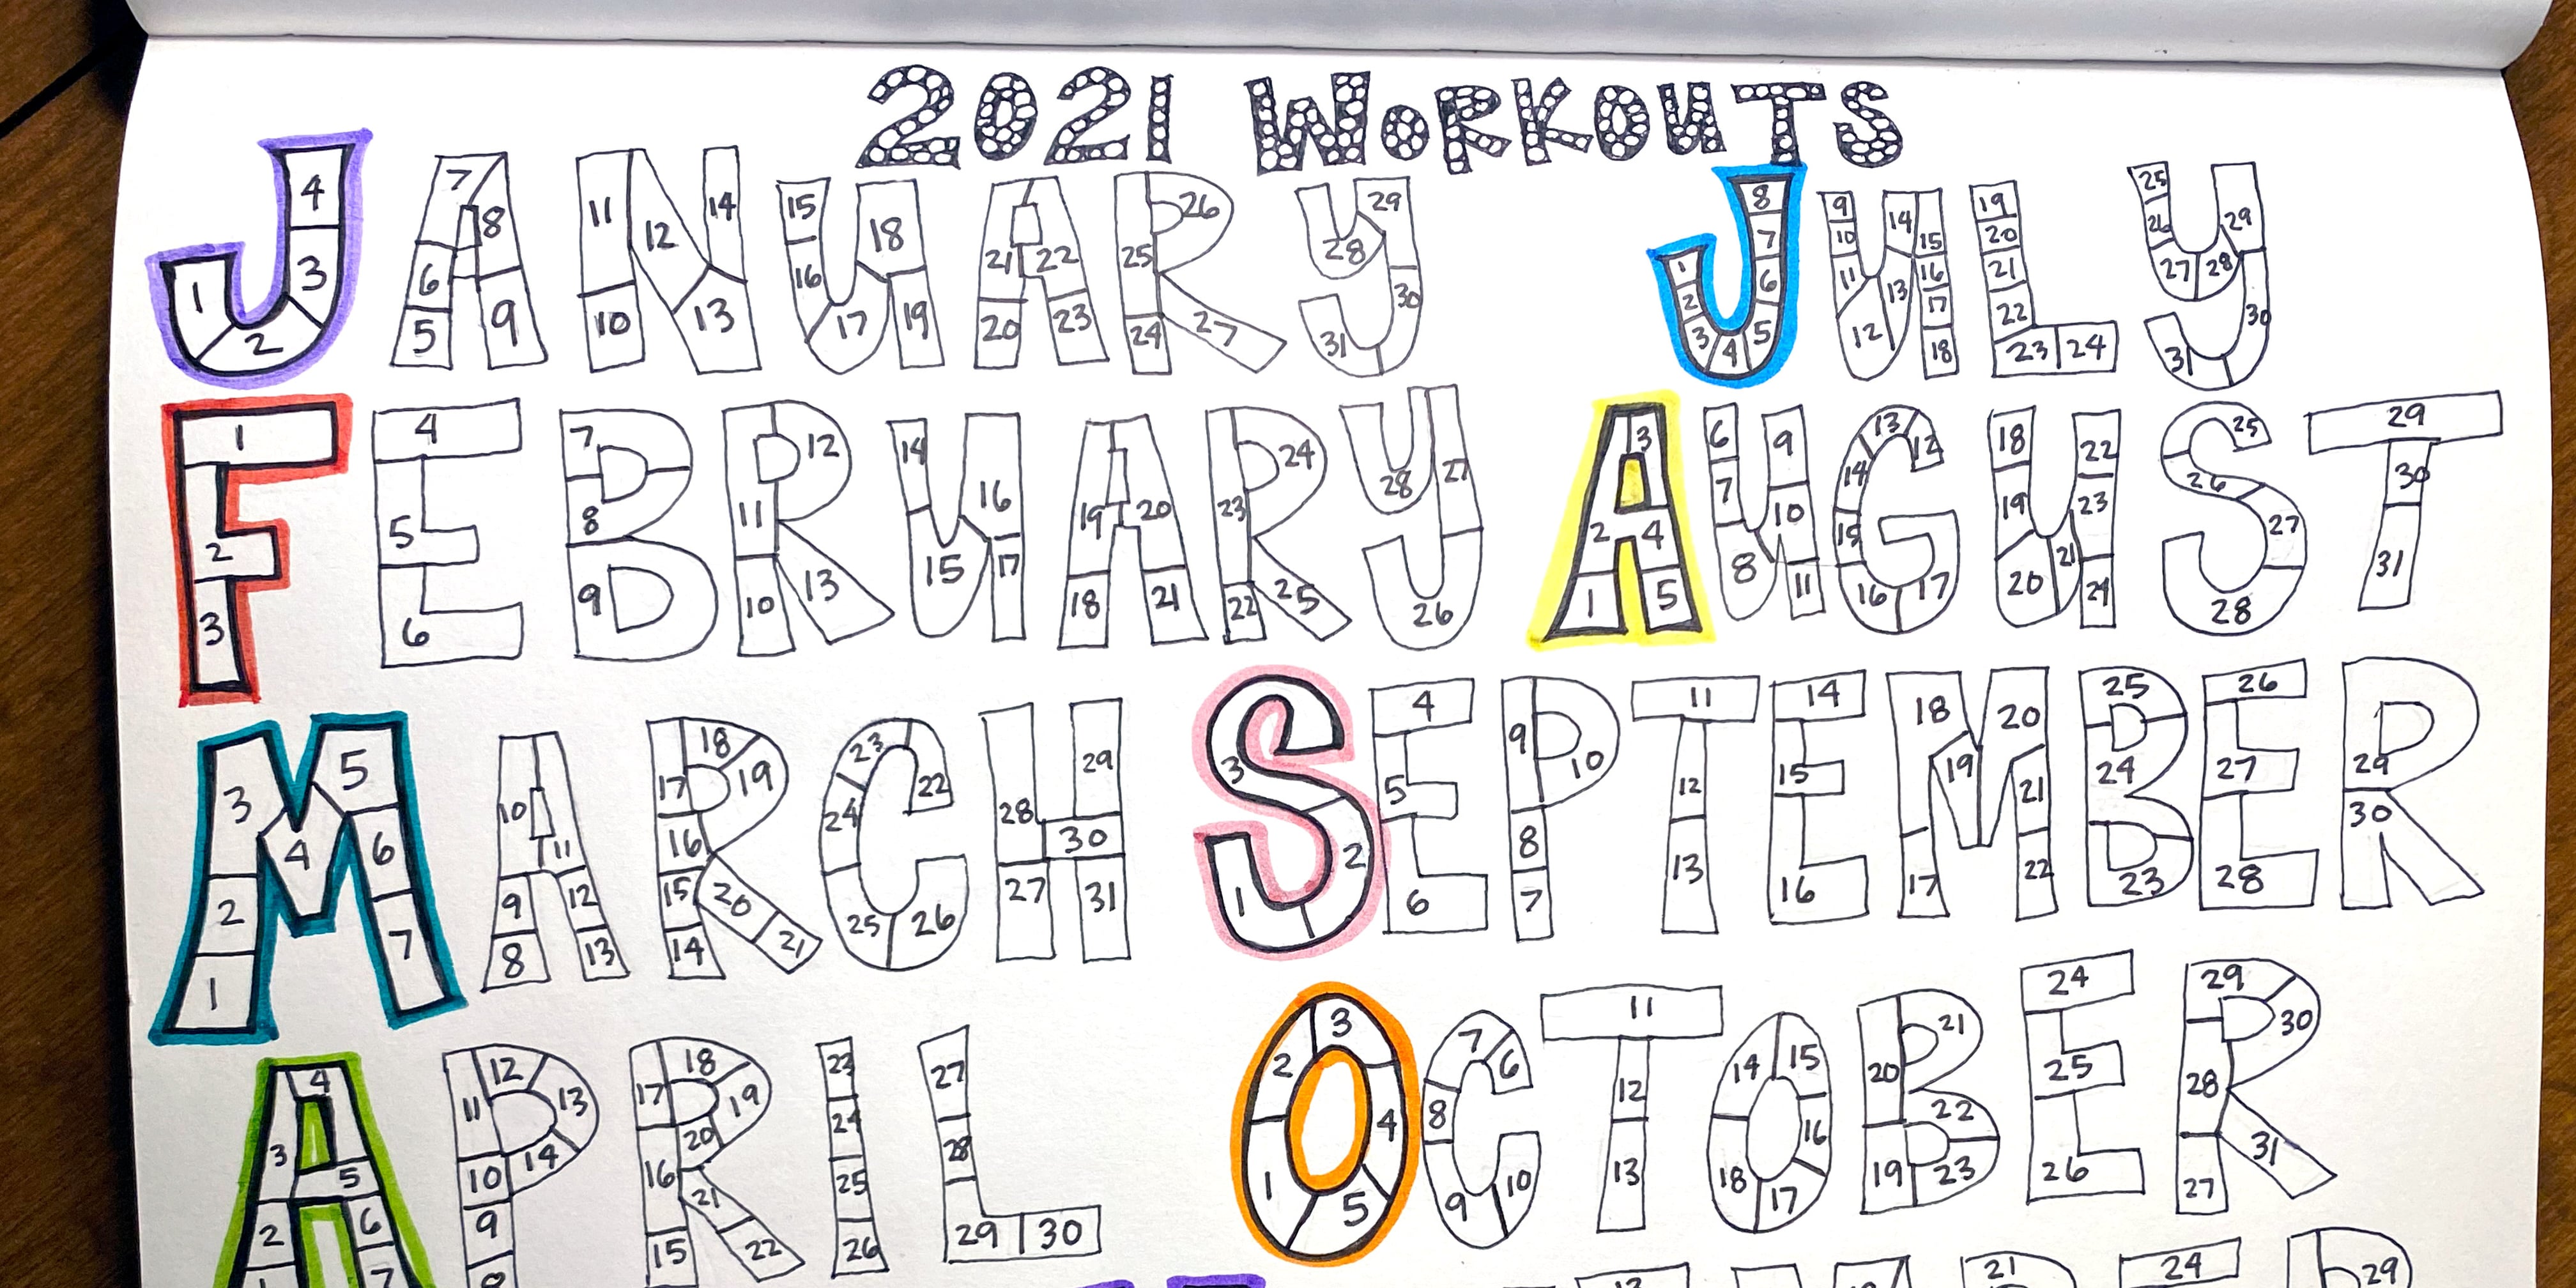 2021 WORKOUTS
JANUARY JULY
1 2 3 4 5 6 7 8 9 10 11 12 13 14 15 16 17 18 19 20 21 22 23 24 25 26 27 28 29 30 31
1 2 3 4 5 6 7 8 9 10 11 12 13 14 15 16 17 18 19 20 21 22 23 24 25 26 27 28 29 30 31
FEBRUARY AUGUST
1 2 3 4 5 6 7 8 9 10 11 12 13 14 15 16 17 18 19 20 21 22 23 24 25 26 27 28
1 2 3 4 5 6 7 8 9 10 11 12 13 14 15 16 17 18 19 20 21 22 23 24 25 26 27 28 29 30 31
MARCH SEPTEMBER
1 2 3 4 5 6 7 8 9 10 11 12 13 14 15 16 17 18 19 20 21 22 23 24 25 26 27 28 29 30 31
1 2 3 4 5 6 7 8 9 10 11 12 13 14 15 16 17 18 19 20 21 22 23 24 25 26 27 28 29 30
APRIL OCTOBER
1 2 3 4 5 6 7 8 9 10 11 12 13 14 15 16 17 18 19 20 21 22 23 24 25 26 27 28 29 30
1 2 3 4 5 6 7 8 9 10 11 12 13 14 15 16 17 18 19 20 21 22 23 24 25 26 27 28 29 30 31
21 24 29